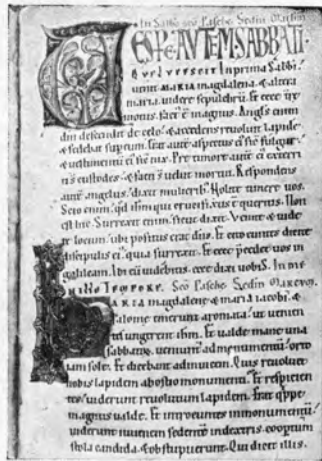 In Sabbo sco Pasche. Sedm Matheu
VESPE. AVTEM. SABBATI.
Que lvcescit In prima Sabbi.
uenit MARIA magdalene, & altera
maria, uidere sepulchrū. Et ecce terre
motus factꝰ ē magnus. Angls enim
dni descendit de celo: & accedens reuoluit lapidē
& sedebat sup eum. Erat autē aspectus eiꝰ sic fulgur:
& uestimentū eiꝰ sic nix. Pre timore autē eiꝰ exterri
ti sē custodes: & facti sē uelut mortui. Respondens
autē angelus, dixit mulieribꝰ. Nolite timere uos.
Scio enim qd ihm qui crucifixus ē queritis. Non
est hic. Surrexit enim sicut dixit. Venite & uide
te locum, ubi positus erat dns. Et cito euntes dicite
discipulis eiꝰ, quia surrexit. Et ecce precedet uos in
galileam. Ibi eū uidebitis. ecce dixi uobis. In me
In illo Tempore. Sco Pasche. Sedm Marcvm.
MARIA magdalene & maria iacobi, &
salome emerunt aromata: ut uenien
tes ungerent ihm. Et ualde mane una
sabbatoꝝ, ueniunt ad monumentū, orto
iam sole. Et dicebant adinuicem. Quis reuoluet
nobis lapidem ab ostio monumenti? Et respicien
tes: uiderunt reuolutum lapidem. Erat qppe
magnus ualde. Et introeuntes in monumentū:
uiderunt iuuenem sedentē in dextris, coopertum
stola candida, & obstupuerunt. Qui dicit illis.